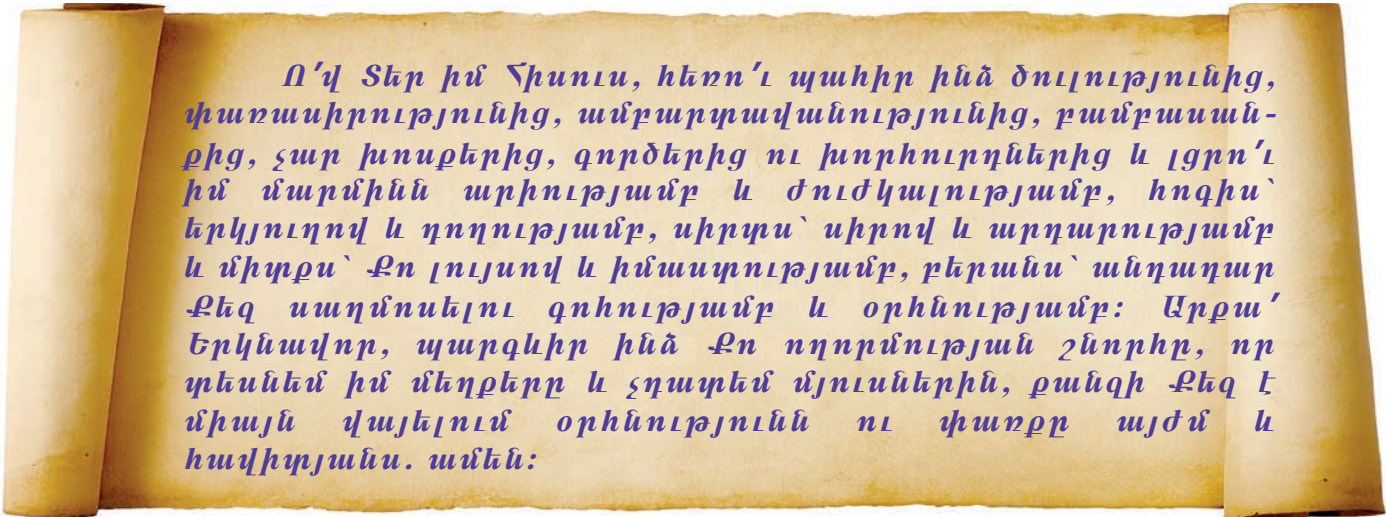 Ո՛վ Տեր իմ Հիսուս, հեռո՛ւ պահիր ինձ ծուլությունից,
փառասիրությունից, ամբարտավանությունից, բամբասան-
քից, չար խոսքերից, գործերից ու խորհուրդներից և լցրո՛ւ
իմ մարմինն արիությամբ և ժուժկալությամբ, հոգիս՝
երկյուղով և դողությամբ, սիրտս՝ սիրով և արդարությամբ
և միտքս՝ Քո լույսով և իմաստությամբ, բերանս՝ անդադար
Քեզ սաղմոսելու գոհությամբ և օրհնությամբ: Արքա՛
Երկնավոր, պարգևիր ինձ Քո ողորմության շնորհը, որ
տեսնեմ իմ մեղքերը և չդատեմ մյուսներին, քանզի Քեզ է
միայն վայելում օրհնությունն ու փառքը այժմ և
հավիտյանս. ամեն: